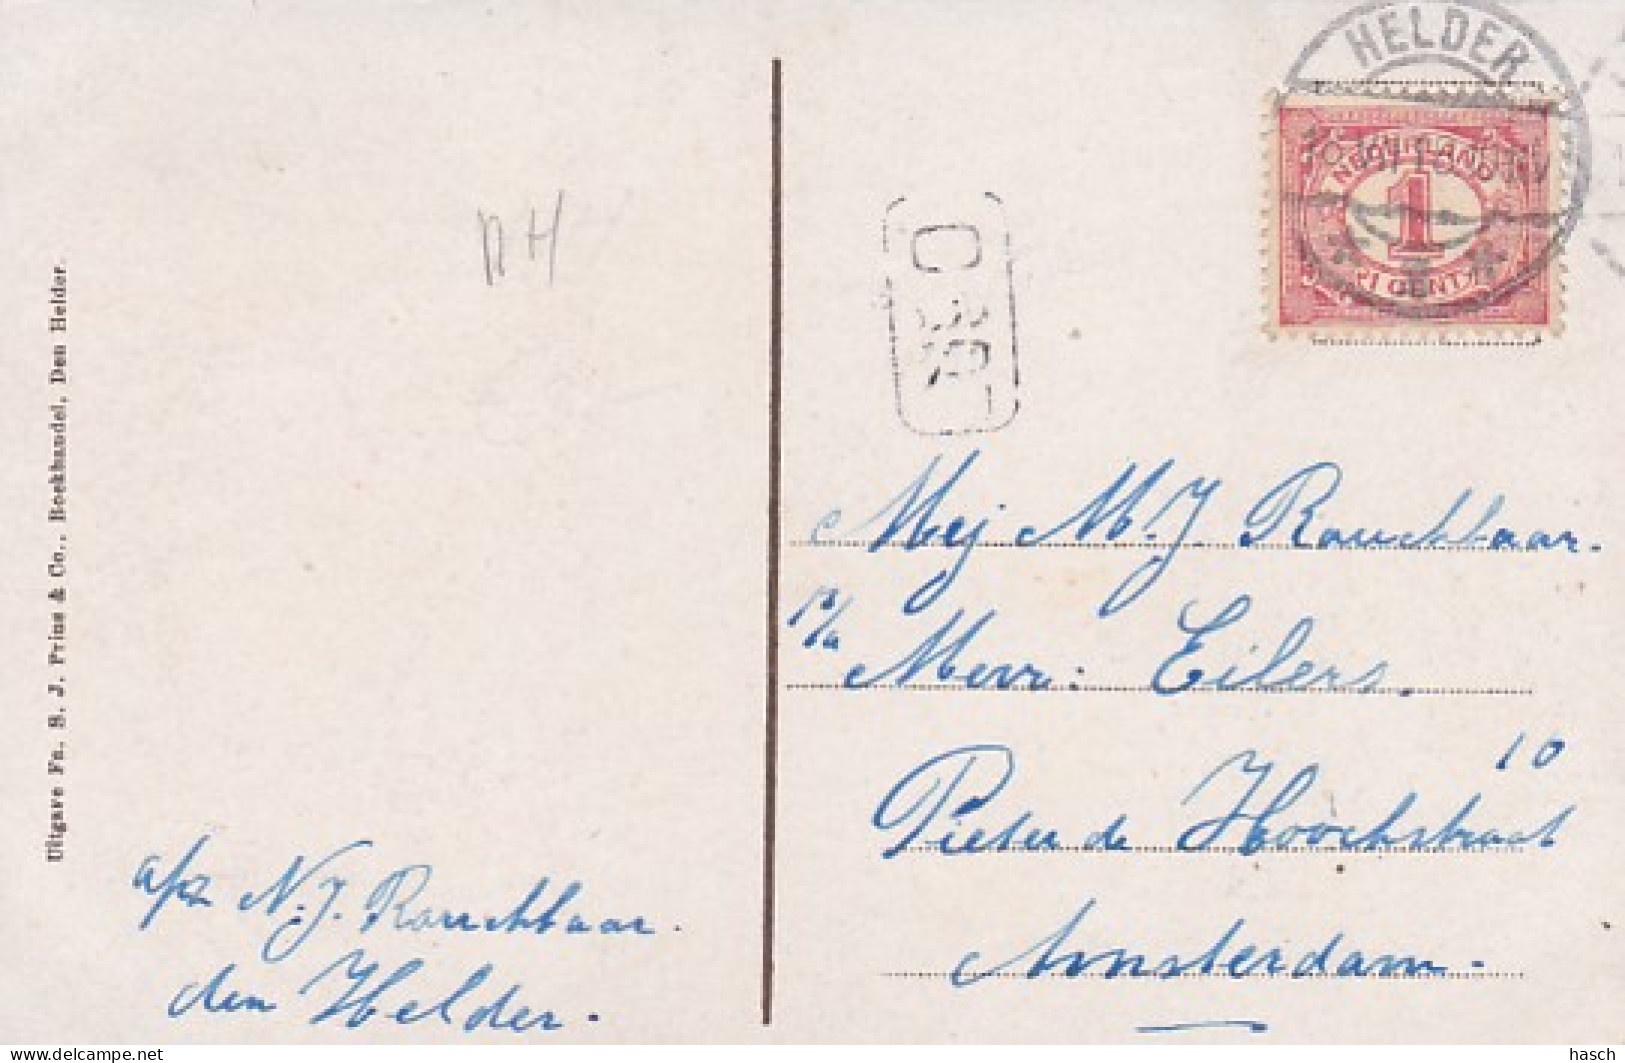 HELDER
NEDERLAND
1
1 CENT
NH
Uitgave Fa. S. J. Prins & Co., Boekhandel, Den Helder.
Mej M. J. Rouchbaar.
p/a Mevr: Eilers.
10
Pieter de Hoochstraat
Amsterdam.
afz N. J. Rouchbaar.
den Helder.
delcampe.net
hasch